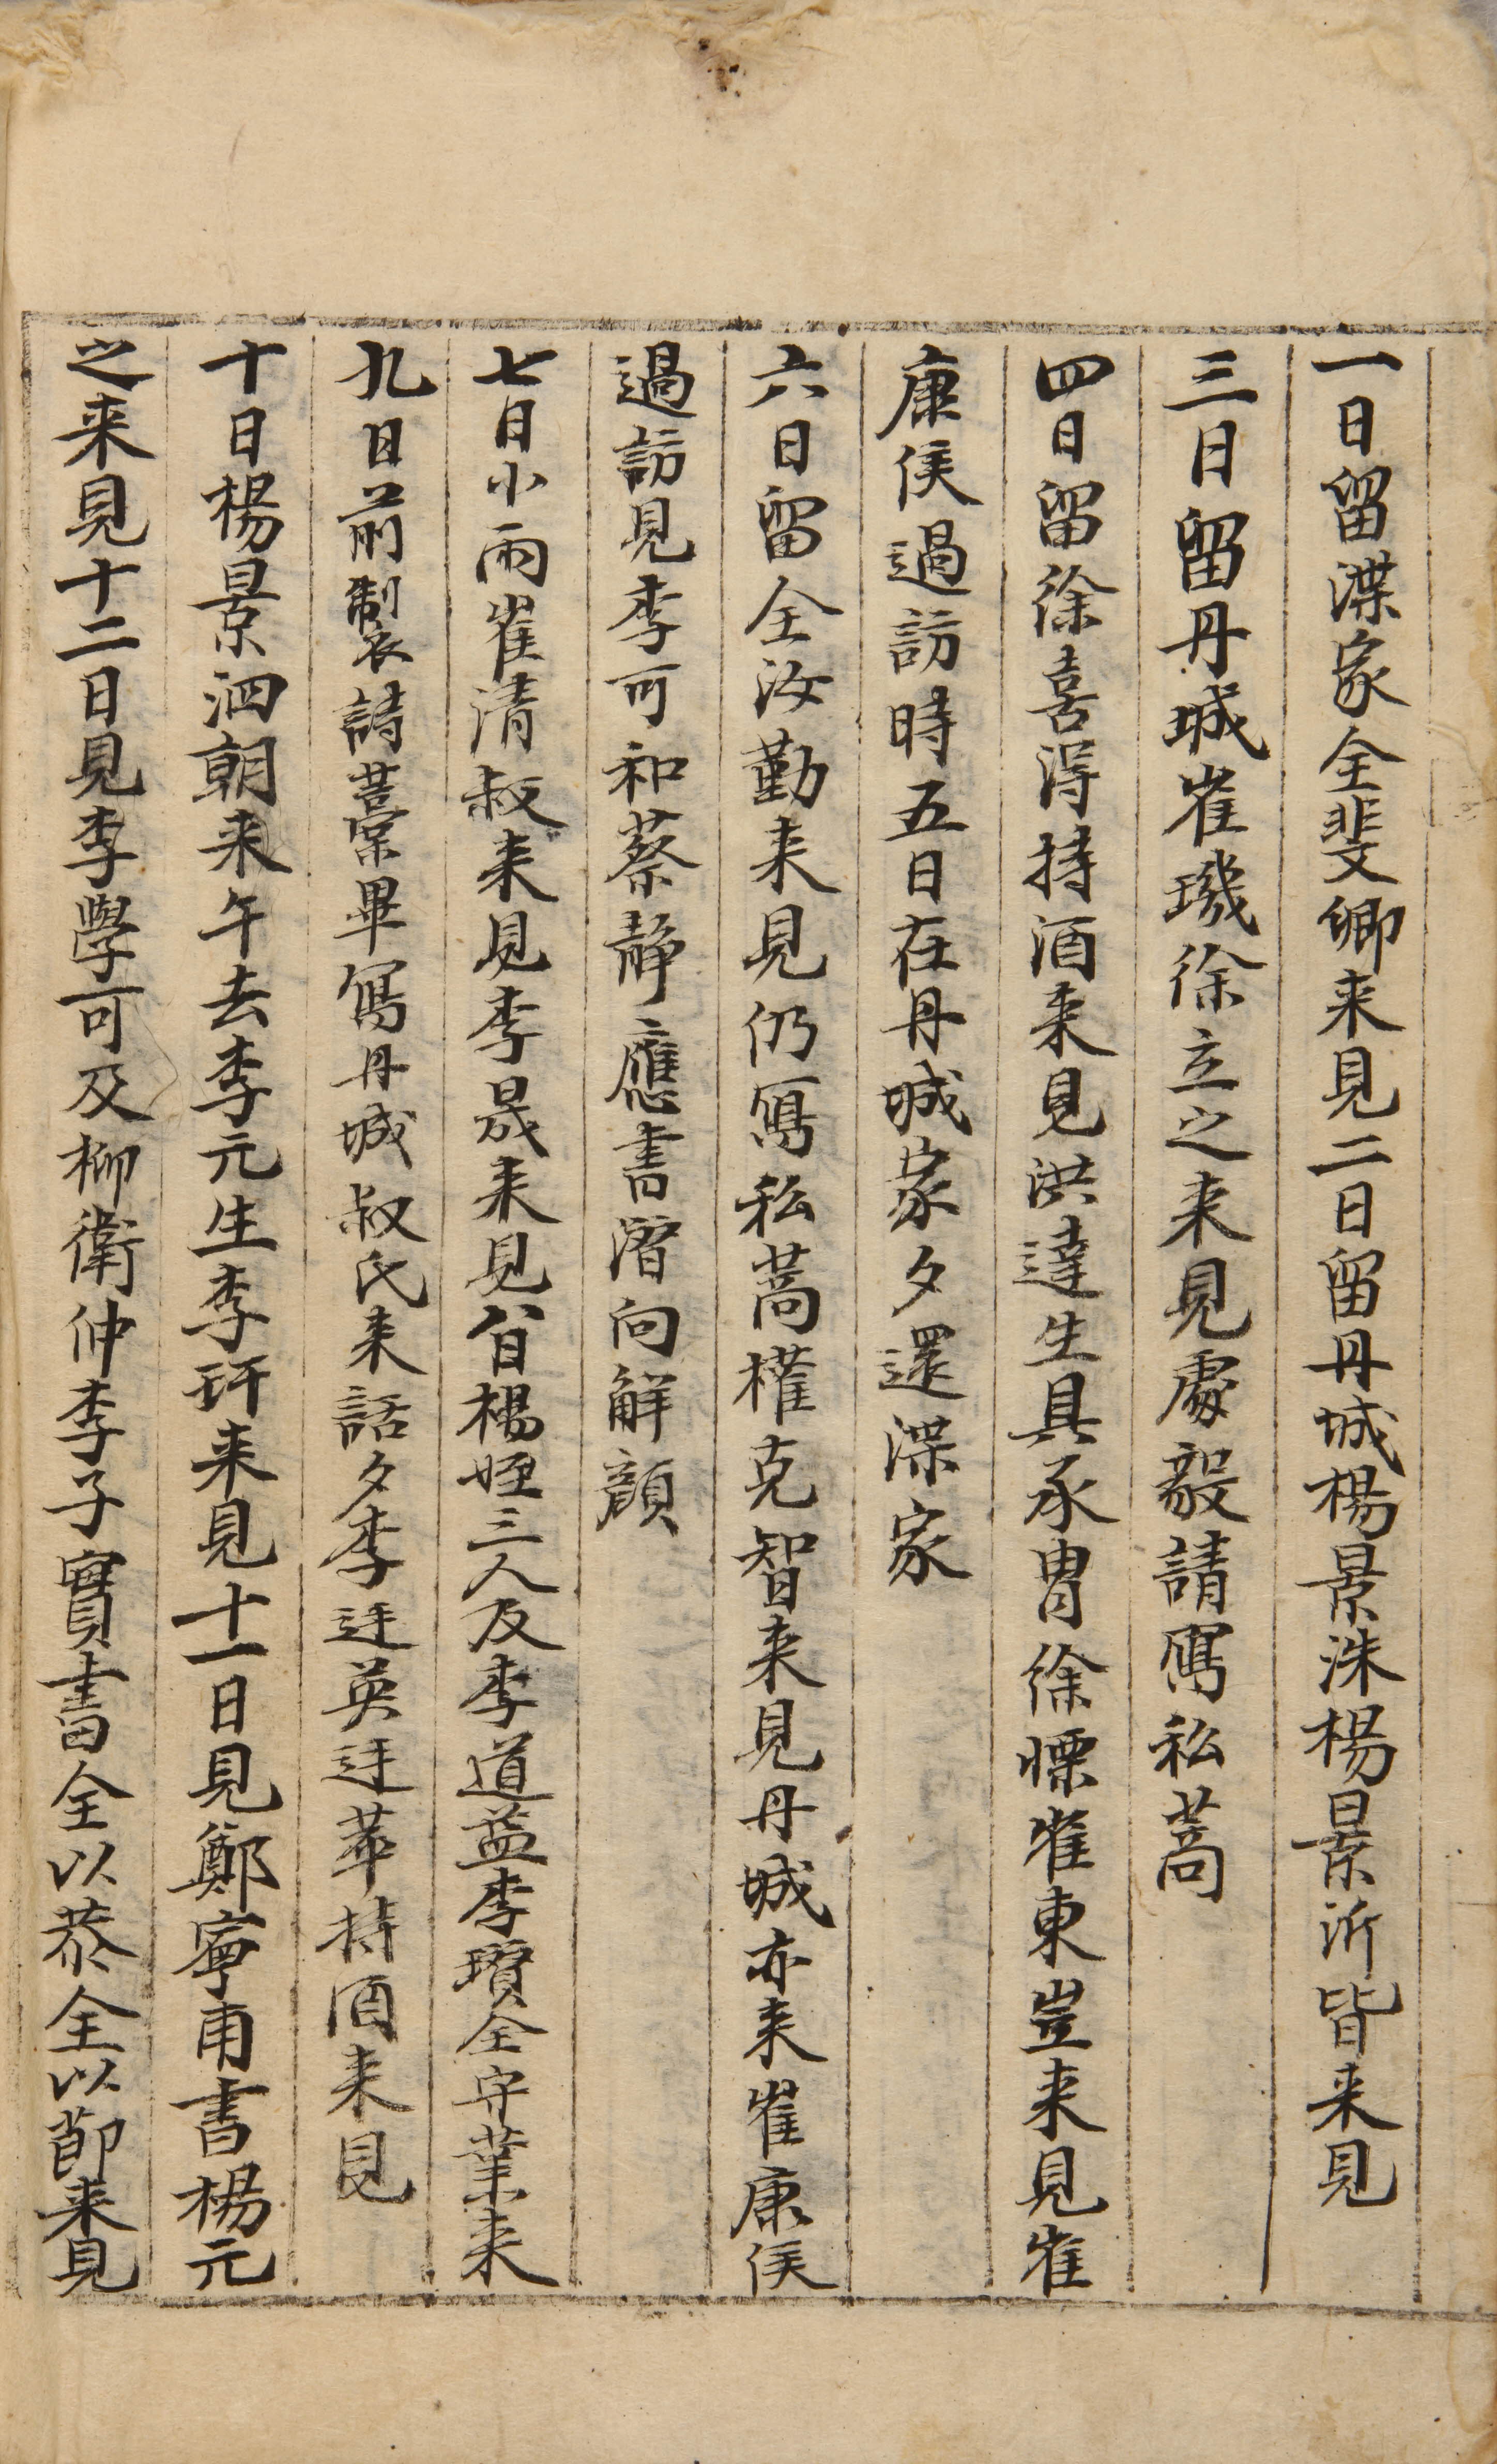 一日留渫家全斐卿来見二日留丹城楊景洙楊景沂皆来見
三日留丹城崔璣徐立之来見處毅請寫私蒿
四日留徐喜淂持酒来見洪達生具承胄徐慄崔東豈来見崔
康侯過訪時五日在丹城家夕還渫家
六日留全汝勤来見仍寫私蒿權克智来見丹城亦来崔康侯
過訪見李可和蔡静應書濳向解顔
七日小雨崔清叔来見李晟来見八日楊姪三人及李道益李瓆全守業来
九日前製詩藁畢寫丹城叔氏来話夕李迋英迋苹持酒来見
十日楊景泗朝来午去李元生李玕来見十一日見鄭寧甫書楊元
之来見十二日見李學可及柳衛仲李子實書全以恭全以節来見